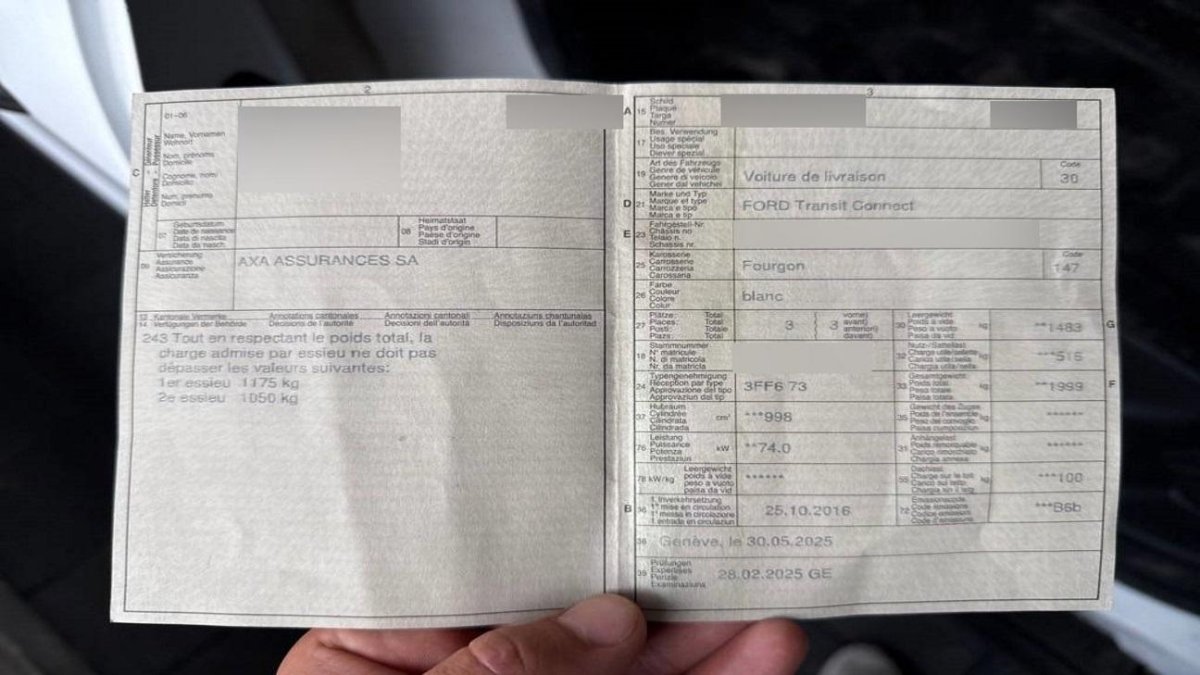 2
01-06
Name, Vornamen
Wohnort
Nom, prénoms
Domicile
Cognome, nomi
Domicilio
Num, prenums
Domicil
C
07
Geburtsdatum
Date de naissance
Data di nascita
Data da nasch.
08
Heimatstaat
Pays d'origine
Paese d'origine
Stadi d'origin
09
Versicherung
Assurance
Assicurazione
Assicuranza
AXA ASSURANCES SA
13 Kantonale Vermerke Annotations cantonales Annotazioni cantonali Annotaziuns chantunalas
14 Verfügungen der Behörde Décisions de l'autorité Decisioni dell'autorità Disposiziuns da l'autoritad
243 Tout en respectant le poids total, la
charge admise par essieu ne doit pas
dépasser les valeurs suivantes:
1er essieu 1175 kg
2e essieu 1050 kg
3
A 15
Schild
Plaque
Targa
Numer
17
Bes. Verwendung
Usage spécial
Uso speciale
Diever spezial
19
Art des Fahrzeugs
Genre de véhicule
Genere di veicolo
Gener dal vehichel
Voiture de livraison
Code
30
D 21
Marke und Typ
Marque et type
Marca e tipo
Marca e tip
FORD Transit Connect
E 23
Fahrgestell-Nr.
Châssis no
Telaio n.
Schassis nr.
25
Karosserie
Carrosserie
Carrozzeria
Carossaria
Fourgon
Code
147
26
Farbe
Couleur
Colore
Colur
blanc
27
Plätze: Total
Places: Total
Posti: Totale
Plazs: Total
3
vorne)
avant)
anteriori)
davant)
3
30
Leergewicht
Poids à vide
Peso a vuoto
Paisa da vid
kg
**1483
G
18
Stammnummer
N° matricule
N. di matricola
Nr. da matricla
32
Nutz-/Sattellast
Charge utile/sellette
Carico utile/sella
Chargia utila/sella
kg
***516
24
Typengenehmigung
Réception par type
Approvazione del tipo
Approvaziun dal tip
3FF6 73
33
Gesamtgewicht
Poids total
Peso totale
Paisa totala
kg
**1999
F
37
Hubraum
Cylindrée
Cilindrata
Cilindrada
cm³
***998
35
Gewicht des Zuges
Poids de l'ensemble
Peso del convoglio
Paisa cumposiziun
kg
******
76
Leistung
Puissance
Potenza
Prestaziun
kW
**74.0
31
Anhängelast
Poids remorquable
Carico rimorchiato
Chargia annexa
kg
******
78 kW/kg
Leergewicht
poids à vide
peso a vuoto
paisa da vid
******
55
Dachlast
Charge sur le toit
Carico sul tetto
Chargia sin il tetg
kg
***100
B 36
1. Inverkehrsetzung
1re mise en circulation
1a messa in circolazione
1. entrada en circulaziun
25.10.2016
72
Emissionscode
Code émissions
Codice emissioni
Code d'emissiuns
***B6b
38
Genève, le 30.05.2025
39
Prüfungen
Expertises
Perizie
Examinaziuns
28.02.2025 GE